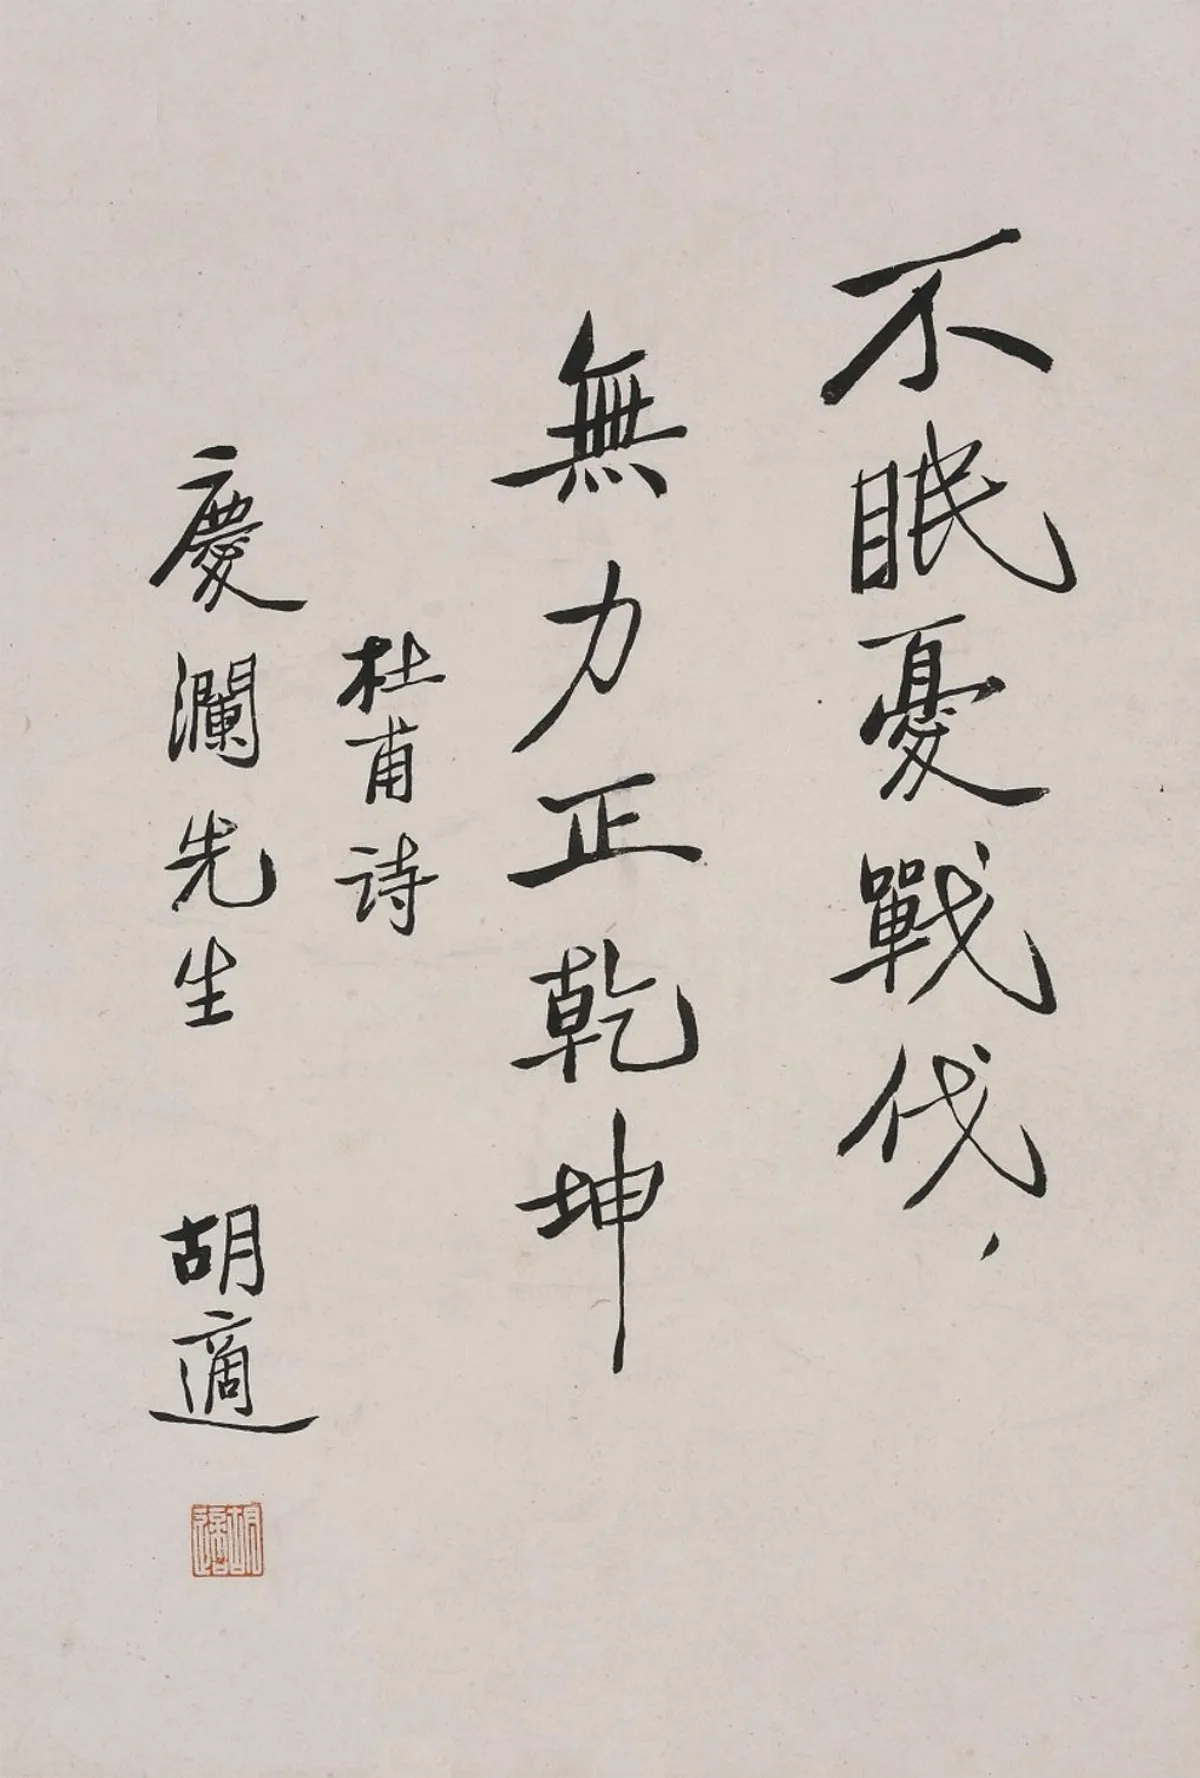 不眠憂戰伐，
無力正乾坤
杜甫詩
慶瀾先生 胡適